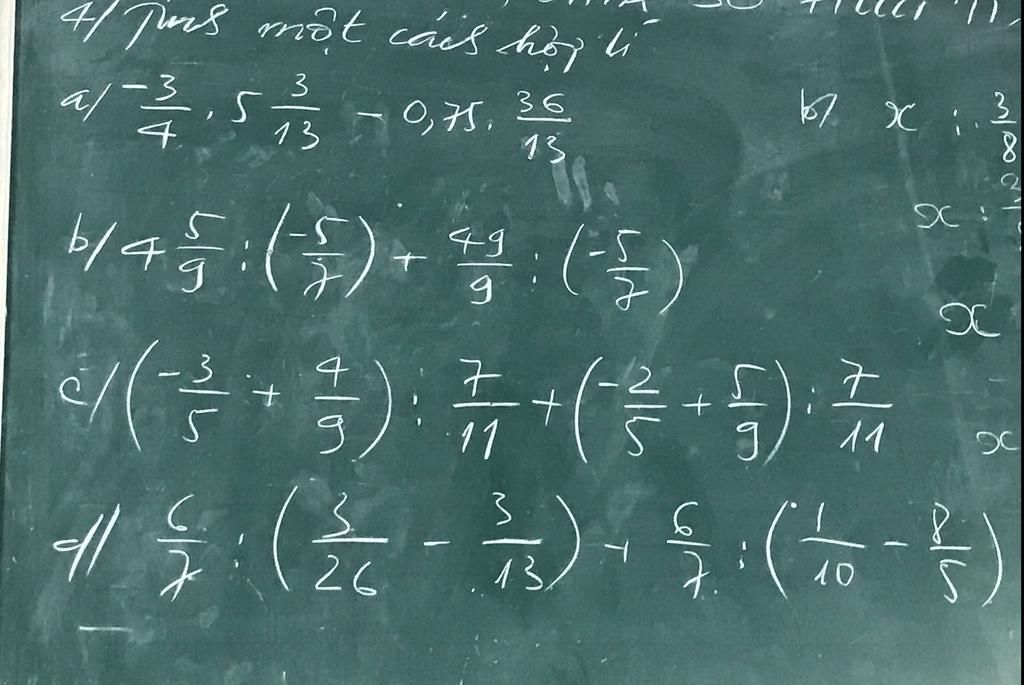 4/ Tính một cách hợp lí
a/ -3/4 . 5 3/13 - 0,75. 36/13
b/ x : 3/8
b/ 4 5/9 : (-5/7) + 49/9 : (-5/7)
x :
x
c/ (-3/5 + 4/9) : 7/11 + (-2/5 + 5/9) : 7/11
x
d/ 6/7 : (3/26 - 3/13) + 6/7 : (1/10 - 8/5)